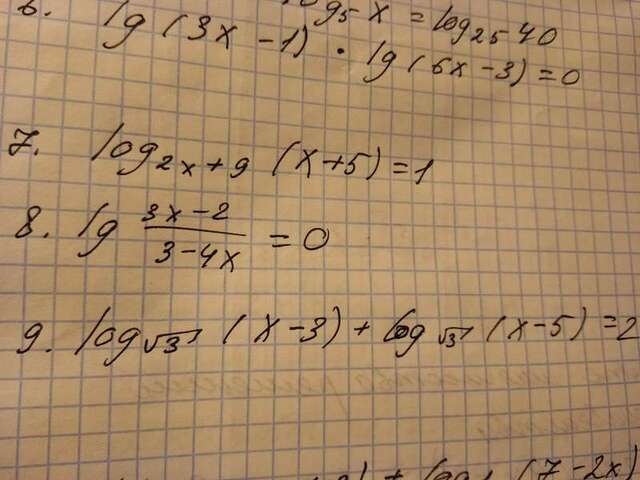 log₅ x = log₂₅ 40
6. lg (3x - 1) · lg (6x - 3) = 0
7. log₂ₓ₊₉ (x + 5) = 1
8. lg (3x - 2)/(3 - 4x) = 0
9. log√3 (x - 3) + log√3 (x - 5) = 2
) + log (7 - 2x)